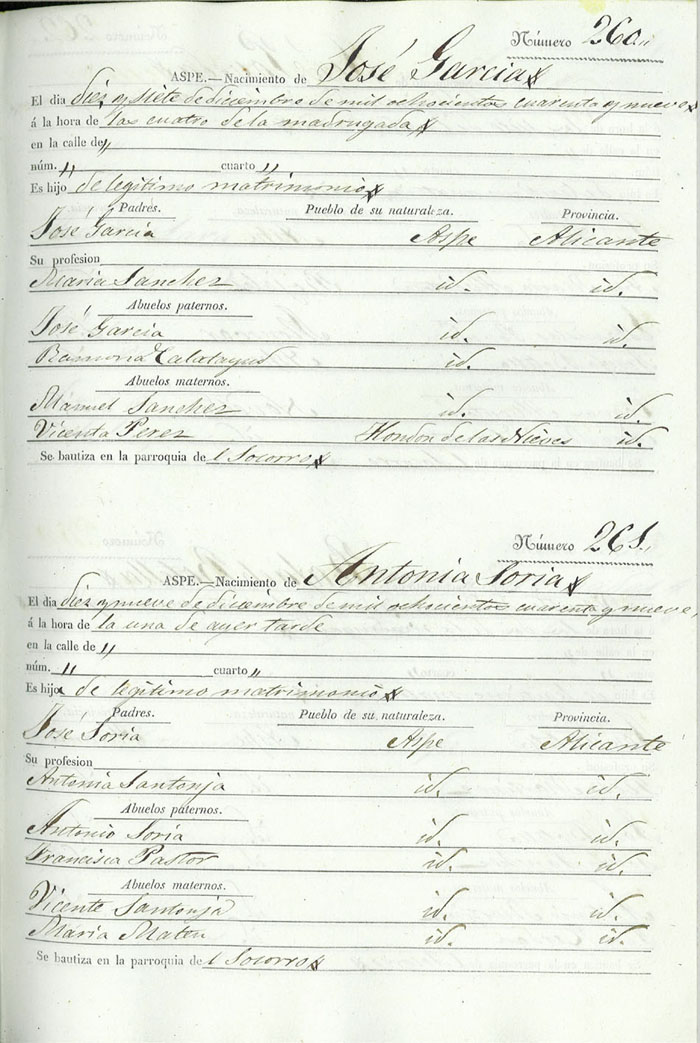 Número 260.
ASPE.—Nacimiento de José Garcia
El dia diez y siete de diciembre de mil ochocientos cuarenta y nueve
á la hora de las cuatro de la madrugada
en la calle de "
núm. " cuarto "
Es hijo de legitimo matrimonio
Padres. Pueblo de su naturaleza. Provincia.
José Garcia Aspe Alicante
Su profesion
Maria Sanchez id. id.
Abuelos paternos.
José Garcia id. id.
Ramona Calatayud id.
Abuelos maternos.
Manuel Sanchez id. id.
Vicenta Perez Hondon de las Nieves id.
Se bautiza en la parroquia del Socorro
Número 261.
ASPE.—Nacimiento de Antonia Soria
El dia diez y nueve de diciembre de mil ochocientos cuarenta y nueve,
á la hora de la una de ayer tarde
en la calle de "
núm. " cuarto "
Es hija de legitimo matrimonio
Padres. Pueblo de su naturaleza. Provincia.
José Soria Aspe Alicante
Su profesion
Antonia Santonja id. id.
Abuelos paternos.
Antonio Soria id. id.
Francisca Pastor id. id.
Abuelos maternos.
Vicente Santonja id. id.
Maria Mateu id. id.
Se bautiza en la parroquia del Socorro